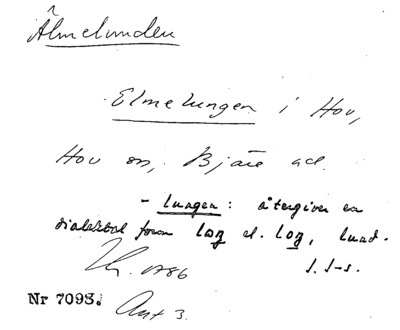 Älmelunden
Elmelungen i Hov,
Hov sn, Bjäre hd.
- lungen: återgiver en
dialektal form loŋ el. loŋ, lund.
1786
Nr 7098. Ant 3.